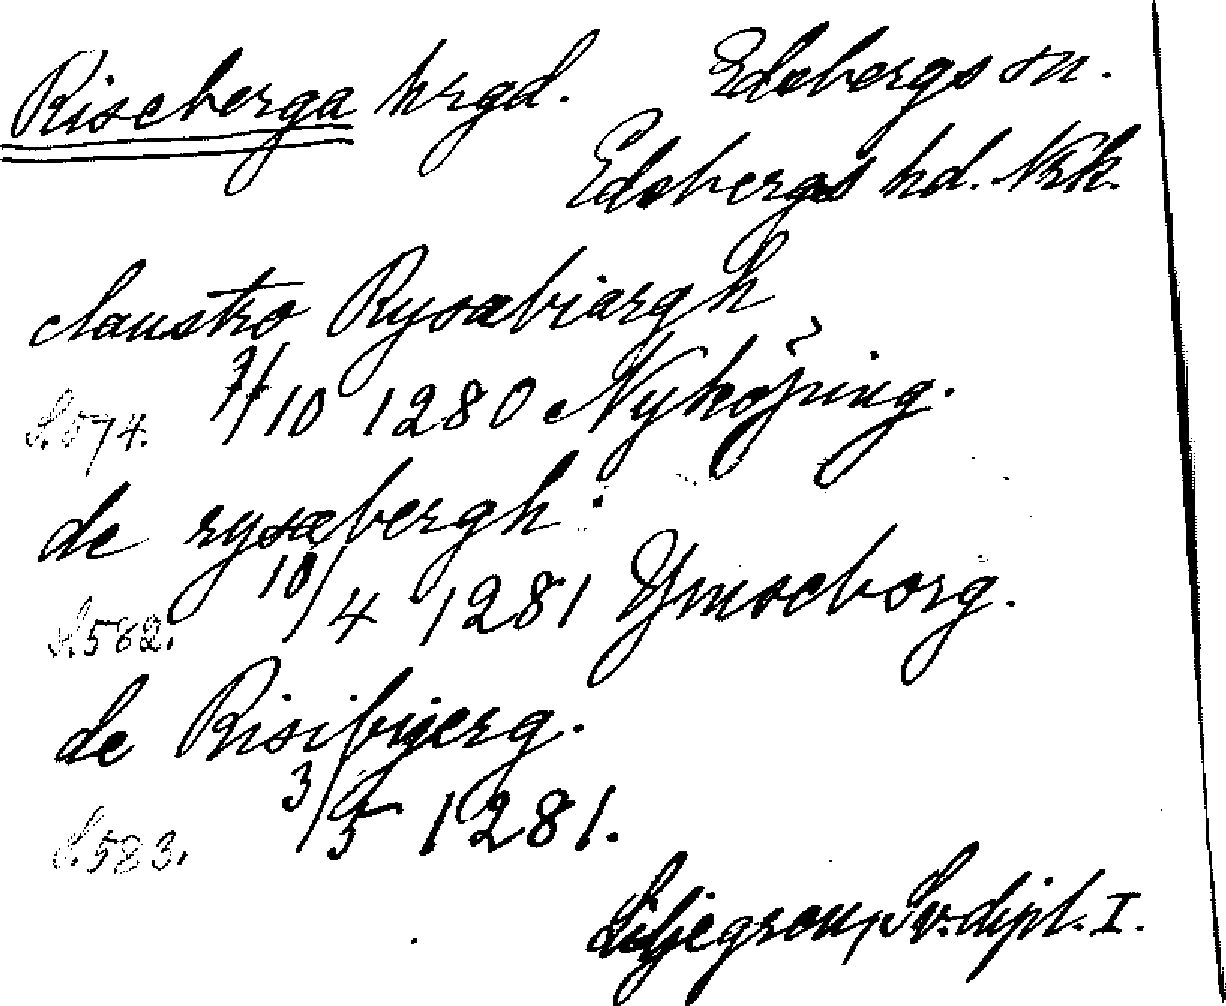 Riseberga hrgd. Edsbergs sn.
Edsbergs hd. Nrk.
claustro Rysæbiargh
S. 574. 7/10 1280 Nyköping.
de rysæbergh
S. 582. 10/4 1281 Ymseborg.
de Risibyerg.
S. 583. 3/5 1281.
Liljegren, Sv. dipl. I.